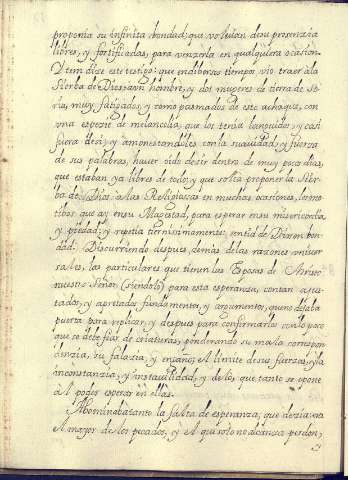 proponia su infinita bondad; que voluian de su presenzia
libres, y fortificadas, para venzerla en qualquiera ocasion.
Y tem dize este testigo: que en diuersos tiempos vio traer á la
Sierba de Dios à vn hombre, y dos mugeres de tierra de So-
ria, muy fatigados, y como pasmados de este achaque, con
vna espezie de melancolia, que los tenia languidos y casi
fuera de si; y amonestandoles con la suauidad, y fuerza
de sus palabras, hauer oido desir dentro de muy poco dias,
que estaban ya libres de todo; y que solia proponer la Sier-
ba de Dios à las Religiosas en muchas ocasiones, los mo-
tibos que ay en su Magestad, para esperar en su misericordia
y piedad; y repetia ternissimamente; sentid de Dios en bon-
dad. Discurriendo despues, demas de las razones vniuer
sales, las particulares que tienen las Esposas de Christo
nuestro Señor (siendolo) para esta esperanza, con tan ajus-
tados, y apretados fundamentos, y argumentos, que no dejaba
puerta para replicar; y despues para confirmarlos con lo poco
que se debe fiar de criaturas, ponderando su mala correspon-
denzia, su falazia, y engaños, el limite de sus fuerzas, y la
inconstanzia, y instauilidad, y de lo que tanto se opone
à el poder esperar en ellas.
Abominaba tanto la falta de esperanza, que dezia: era
el mayor de los pecados, y el que solo no alcanza perdon,